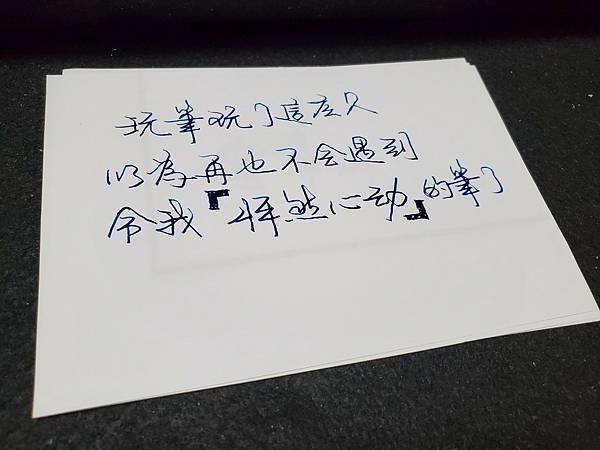 玩筆玩了這麼久
以為再也不会遇到
令我『怦然心动』的筆了